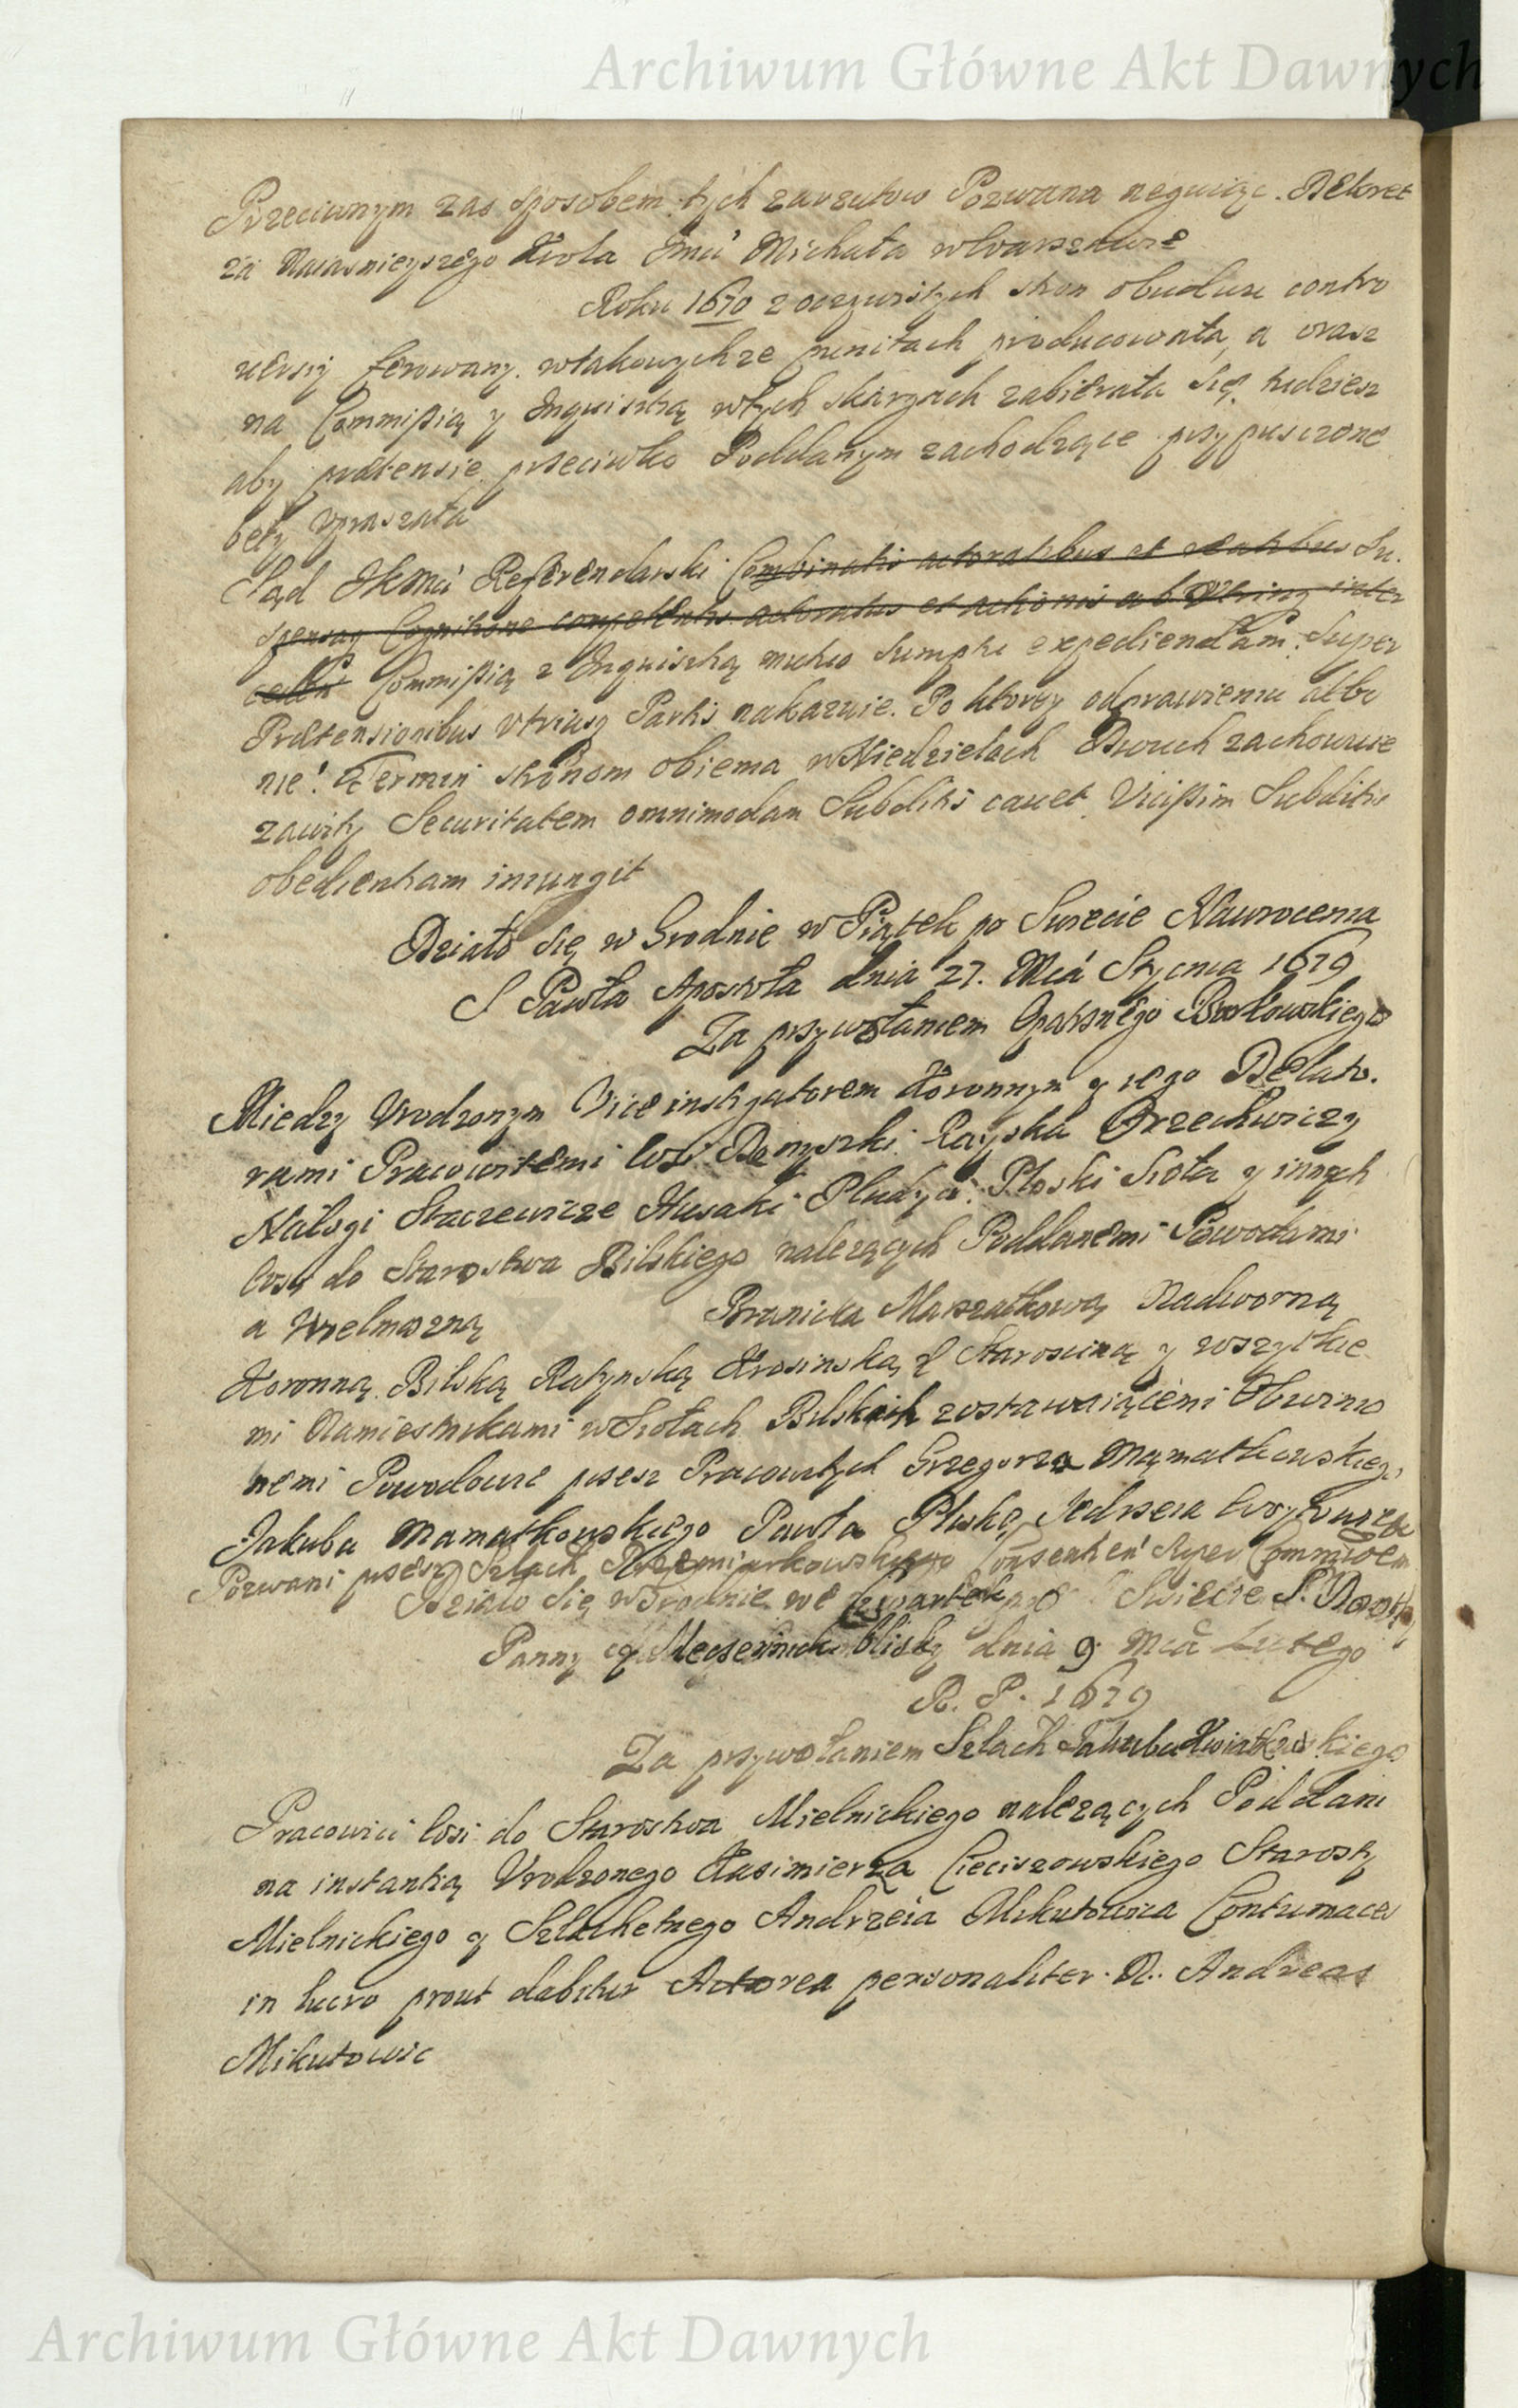 Archiwum Główne Akt Dawnych
Przeciwnym zas sposobem tych zarzutow Pozwana neguiąc. Dekret
za Naiasnieyszego Krola Jmci Michała w Warszawie
Roku 1670 z oczywistych stron obudwu contro
wersiy ferowany w takowychze punctach producowała, a oraz
na Commissią y Inquisitią w tych skargach zabierała się, tudziesz
aby praetensie przeciwko Poddanym zachodzące przypuszczone
beły vpraszała
Sąd JKMci Referendarski Combinatis actoratibus et reatibus Su.
spensaq Cognitione competentis actoratus et actionis ab utrinq inter
Commissią z Inquisitią mutuo sumptu expediendam. Super
Praetensionibus vtriusq Partis nakazuie. Po ktorey odprawieniu albo
nie! Termin stronom obiema w Niedzielach Dwuch zachowuie
zawity Securitatem omnimodam Subditis cavet Vicissim Subditis
obedientiam iniungit
Działo się w Grodnie w Piątek po Swięcie Nawrocenia
S Pawła Apostoła dnia 27. Mca Stycznia 1679
Za przywołaniem Opatrznego Brokowskiego
Miedzy Vrodzonym Vice instigatorem Koronnym y iego Delato.
rami Pracowitemi Wsi Denyszki Rayska Orzechwiczy
Nałogi Strczewicze Husaki Pludycz Ploski Sioła y innych
Wsiy do Starostwa Bilskiego nalezących Poddanemi Powodami
a Wielmozną Branicka Marszałkową Nadworną
Koronną Bilską Ratynską Krosinską Starosciną y wszytkie
mi Namiestnikami w Siołach Bilskich zostawaiącemi Obwinio
nemi Powodowie przez Pracowitych Grzegorza Mamatkowskiego
Jakuba Mamatkowskiego Pawła Pluskę Jedrzeia
Pozwani przez Szlach Consentien Super Commissem
Działo się w Grodnie we Czwartek po Swięcie S. Doroty
Panny y Męczeniczki blisky dnia 9 Mca Lutego
R. P. 1679
Za przywołaniem Szlach Jakuba Kwiatkowskiego
Pracowici Wsi do Starostwa Mielnickiego nalezących Poddani
na instantią Vrodzonego Kazimierza Cieciszowskiego Starosty
Mielnickiego y Szlachetnego Andrzeia Mikutowica Contumaces
in lucro prout dabitur Actorea personaliter. R. Andreas
Mikutowic
Archiwum Główne Akt Dawnych